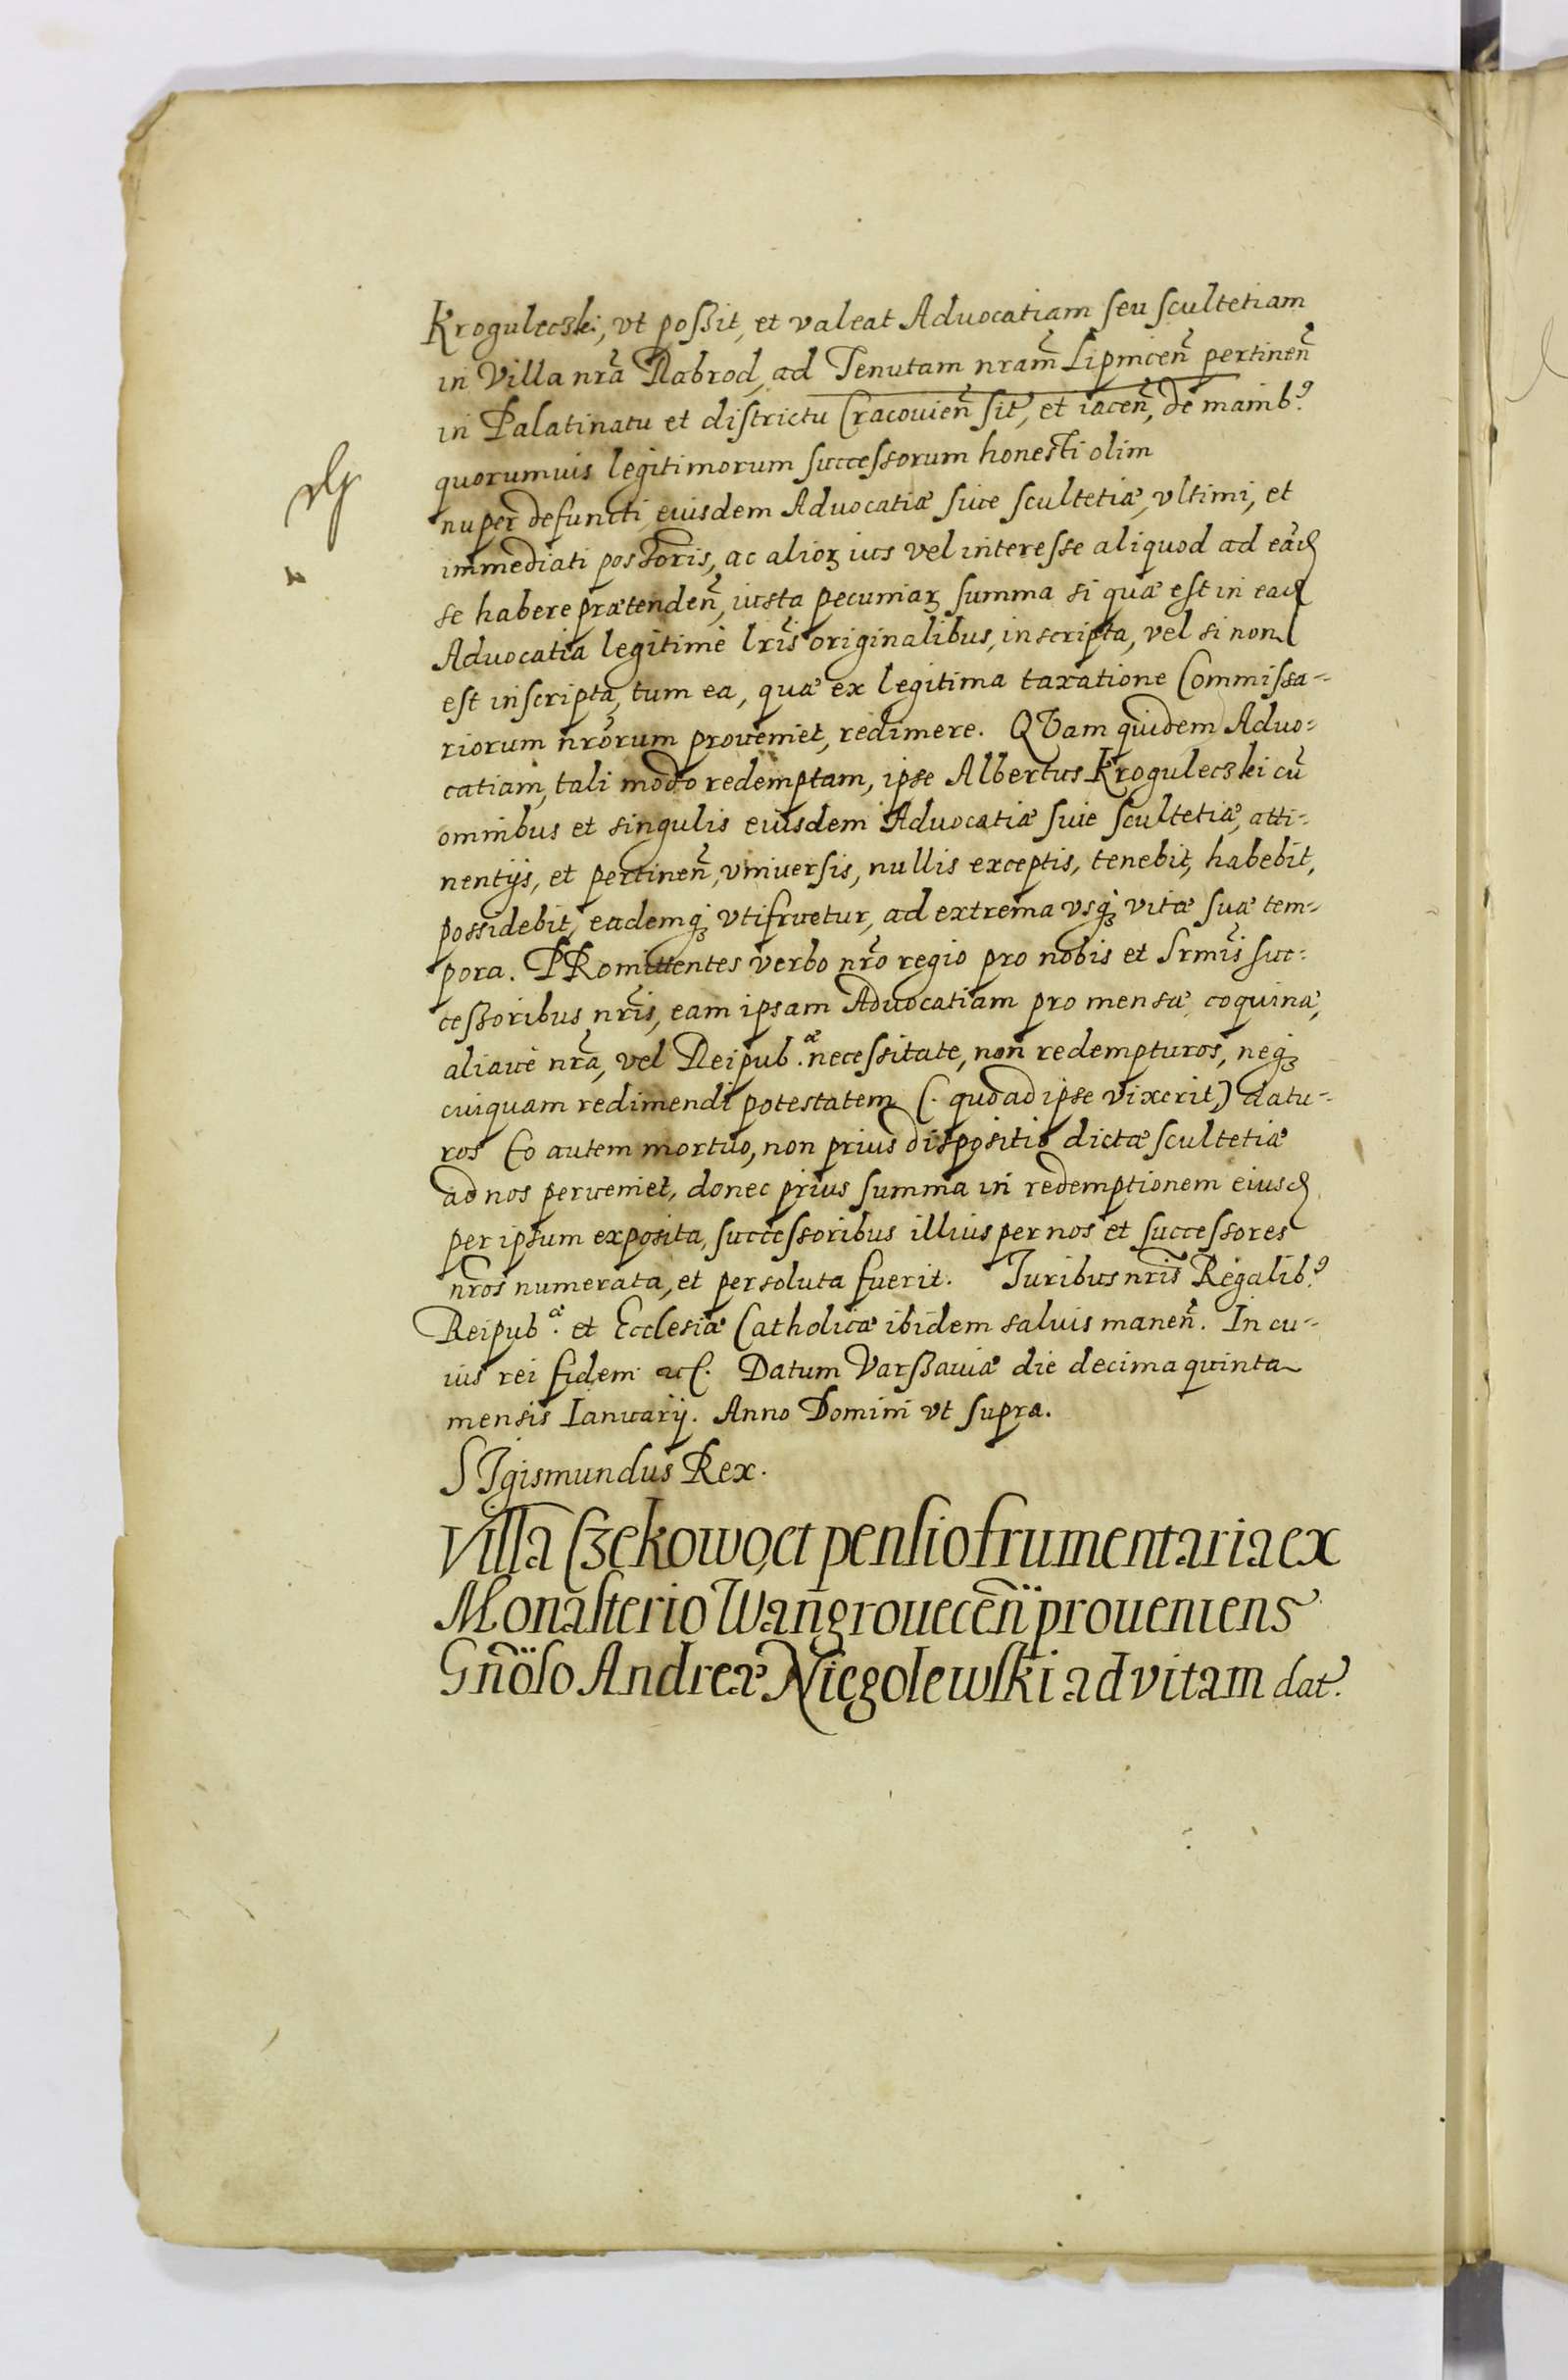 Kroguleczki, vt poßit, et valeat Aduocatiam seu scultetiam
in Villa nrã Rabrod, ad Tenutam nram̃ Lipnicen̄ pertinen̄
in Palatinatu et districtu Cracouien̄ sit̄, et iacen̄, de manib9
quorumuis legitimorum successorum honesti olim
nuper defuncti, eiusdem Aduocatiæ siue scultetiæ, vltimi, et
immediati possoris, ac alioꝝ ius vel interesse aliquod ad eãd
se habere prætenden̄, iusta pecuniaꝝ summa si quæ est in ead
Aduocatia legitimè lris̃ originalibus, inscripta, vel si non
est inscripta, tum ea, quæ ex legitima taxatione Commissa-
riorum nrõrum proueniet, redimere. QVam quidem Aduo-
catiam, tali modo redemptam, ipse Albertus Kroguleczki cũ
omnibus et singulis eiusdem Aduocatiæ siue scultetiæ, atti-
nentijs, et pertinen̄, vniuersis, nullis exceptis, tenebit, habebit,
possidebit, eademqꝫ vtifruetur, ad extrema vsqꝫ vitæ suæ tem-
pora. PRomittentes verbo nrõ regio pro nobis et Srmis̃ suc-
ceßoribus nris̃, eam ipsam Aduocatiam pro mensæ, coquinæ,
aliaue nrã, vel Reipub.æ necessitate, non redempturos, neqꝫ
cuiquam redimendi potestatem (. quoad ipse vixerit,) datu-
ros Eo autem mortuo, non prius dispositio dictæ scultetiæ
ad nos perueniet, donec prius summa in redemptionem eiusd
per ipsum exposita, successoribus illius per nos et successores
nrõs numerata, et persoluta fuerit. Juribus nris̃ Regalib9
Reipub.æ et Ecclesiæ Catholicæ ibidem saluis manen̄. In cu-
ius rei fidem etc. Datum Varßauiæ die decima quinta
mensis Ianuarij. Anno Domini vt supra.
SIgismundus Rex.
Villa Czekowo, et pensio frumentaria ex
Monasterio Wangrouecen̄ proueniens
Gnõso Andreæ Niegolewski ad vitam dat̃.